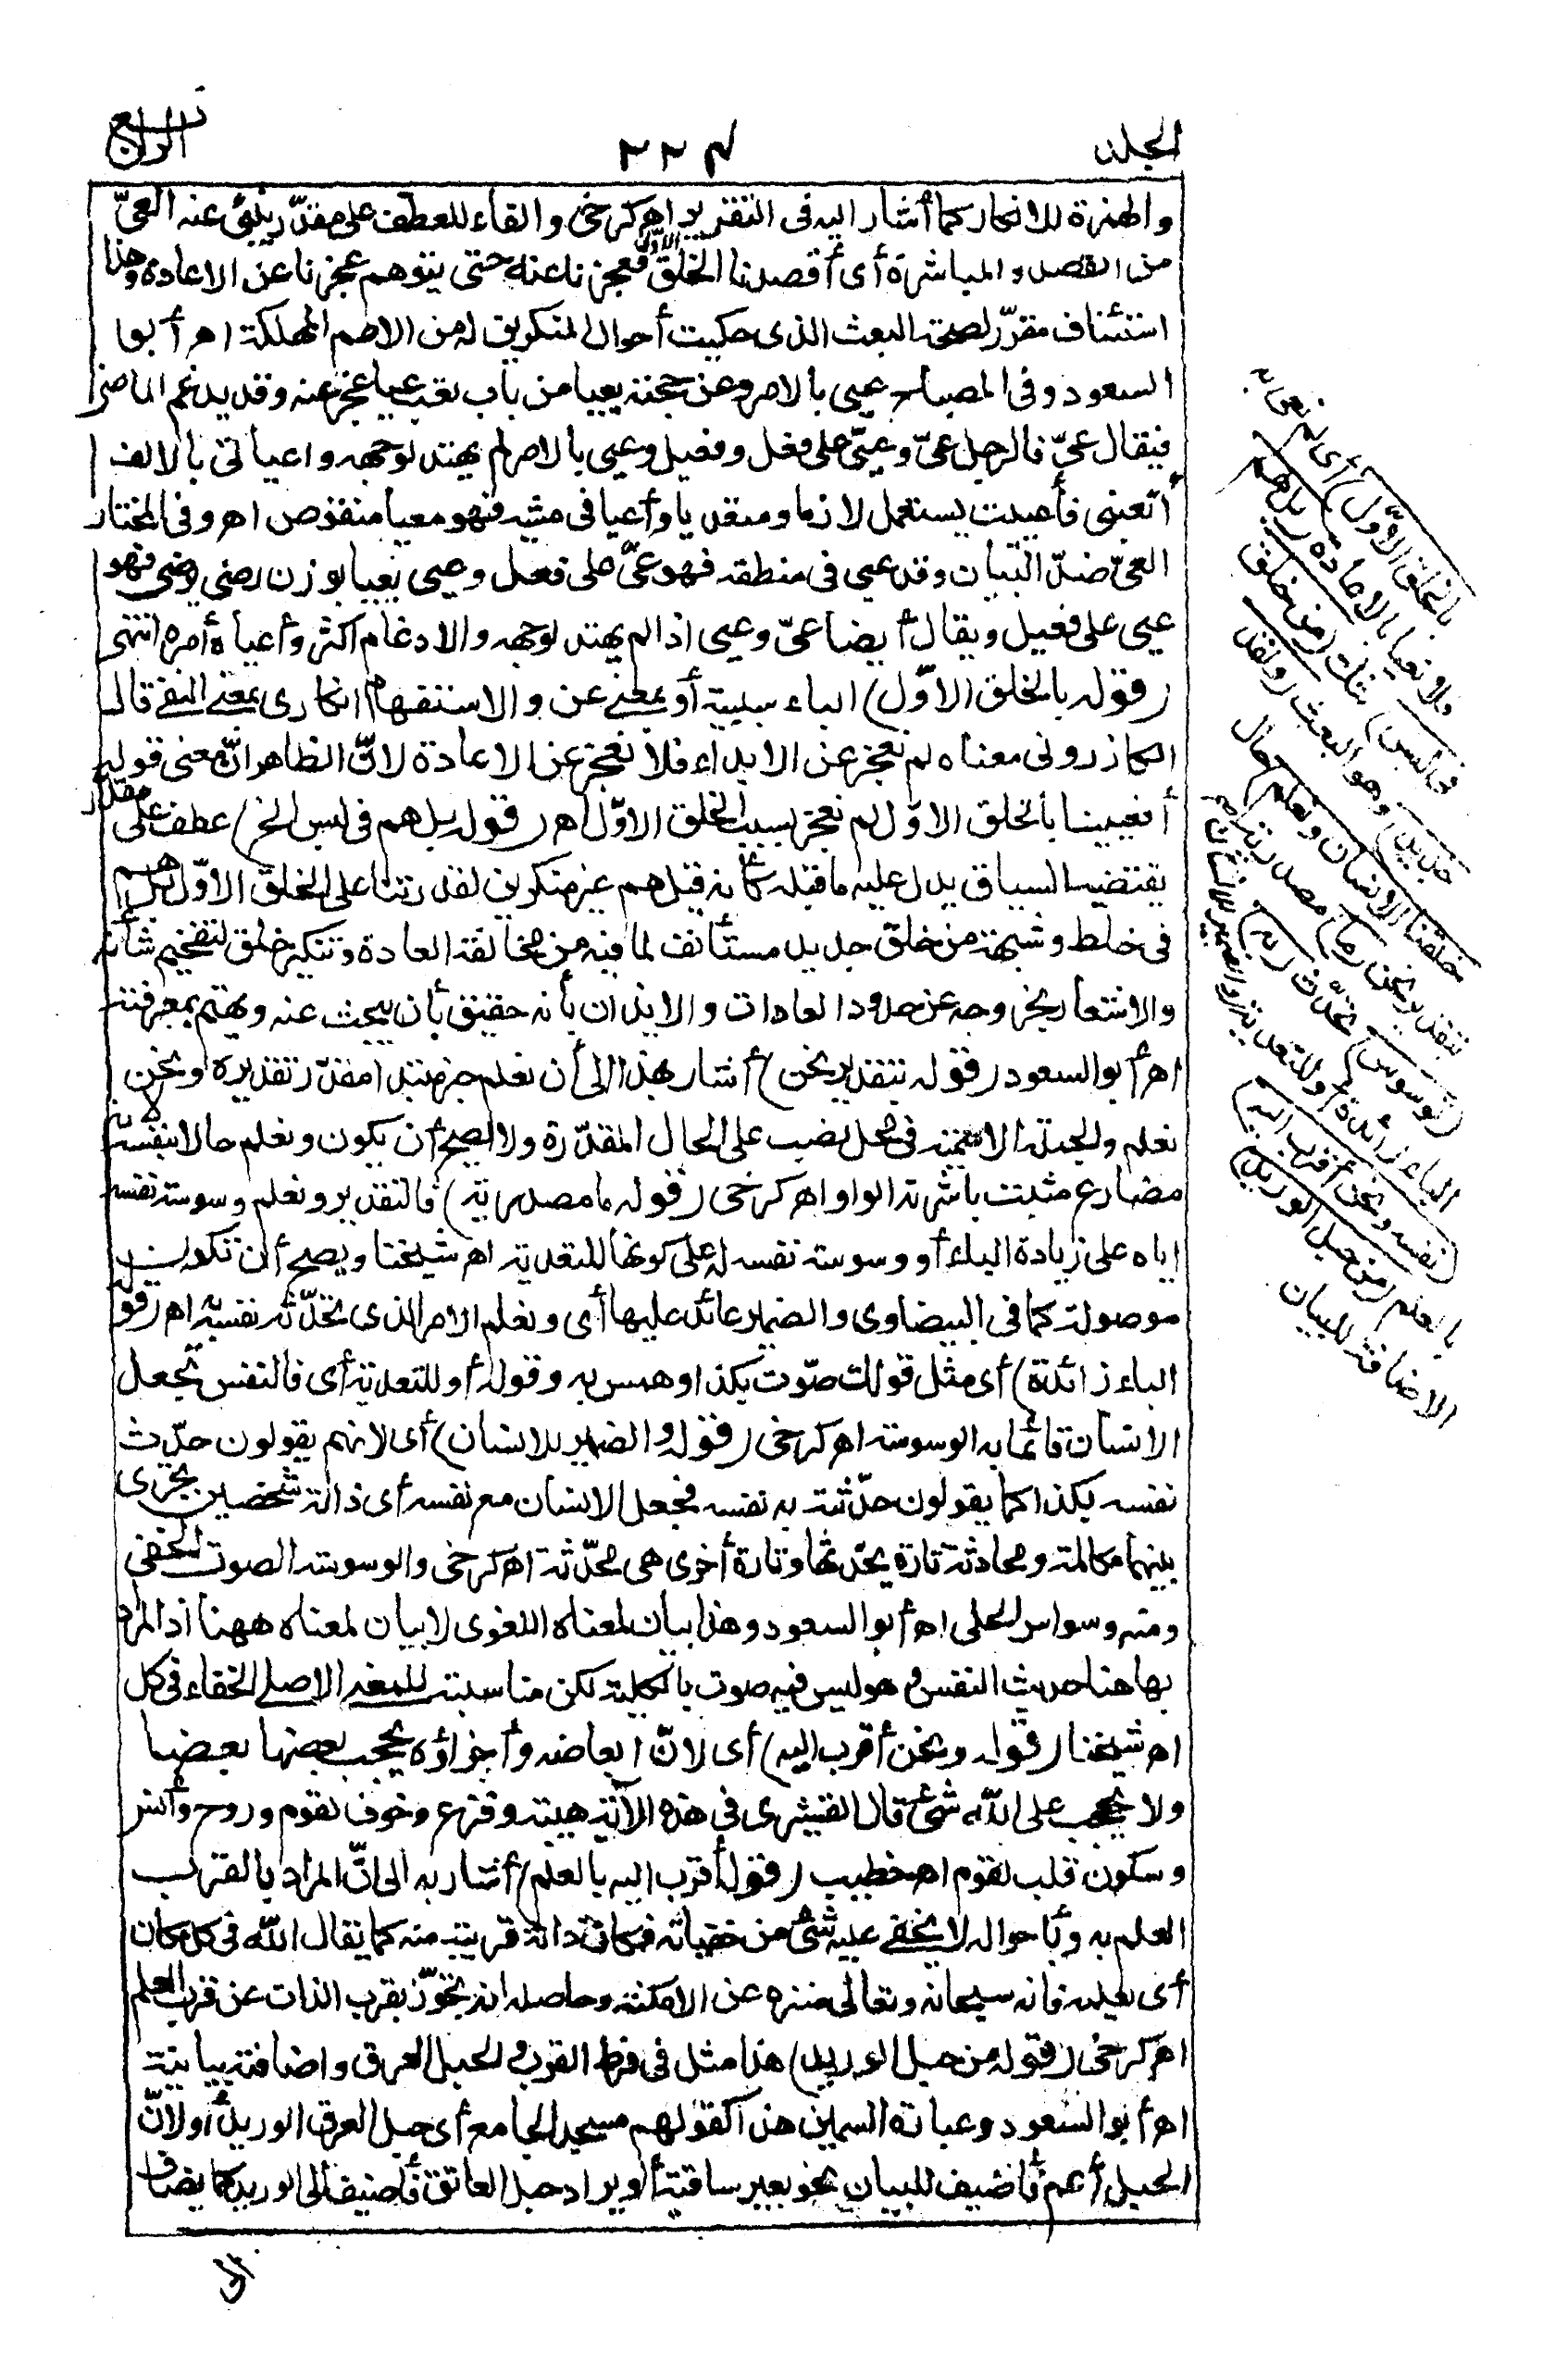 الجلد ٢٢٣ الرابع
والهمزة للانكار كما أشار اليه فى التقرير اه كرخى والفاء للعطف على مقدّر ينبئ عنه العىّ
من القصد والمباشرة أى أقصدنا الخلق الاوّل فعجزنا عنه حتى يتوهم عجزنا عن الاعادة وهذا
استئناف مقرّر لصحة البعث الذى حكيت أحوال المنكرين له من الامم المهلكة اه أبو
السعود وفى المصباح عيى بالامر وعن حجته يعيا من باب تعب عيا عجز عنه وقد يدغم الماضى
فيقال عىّ فالرجل عىّ وعيىّ على فعل وفعيل وعيى بالامر لم يهتد لوجهه واعيانى بالالف
أتعبنى فأعييت يستعمل لازما ومتعديا وأعيا فى مشيه فهو معيا منقوص اه وفى المختار
العىّ ضدّ البيان وقد عيى فى منطقه فهو عىّ على فعل وعيى يعيا بوزن رضى يرضى فهو
عيى على فعيل ويقال أيضا عىّ وعيى اذا لم يهتد لوجهه والادغام أكثر وأعياه أمره انتهى
(قوله بالخلق الاوّل) الباء سببية أو بمعنى عن والاستفهام انكارى بمعنى النفى قال
الكازرونى معناه لم نعجز عن الابداء فلا نعجز عن الاعادة لانّ الظاهر انّ معنى قوله
أفعيينا بالخلق الاوّل لم نعجز بسبب الخلق الاوّل اه (قوله بل هم فى لبس الخ) عطف على مقدّر
يقتضيه السياق يدل عليه ما قبله كأنه قيل هم غير منكرين لقدرتنا على الخلق الاوّل بل هم
فى خلط وشبهة من خلق جديد مستأنف لما فيه من مخالفة العادة وتنكير خلق لتفخيم شأنه
والاشعار بخروجه عن حدود العادات والايذان بأنه حقيق بأن يبحث عنه ويهتم بمعرفته
اه أبو السعود (قوله بتقدير نحن) أشار بهذا الى أن نعلم خبر مبتدا مقدّر تقديره ونحن
نعلم والجملة الاسمية فى محل نصب على الحال المقدّرة ولا يصح أن يكون ونعلم حالا بنفسه لانه
مضارع مثبت باشرته الواو اه كرخى (قوله ما مصدرية) فالتقدير ونعلم وسوسته نفسه
اياه على زيادة الباء أو وسوسة نفسه له على كونها للتعدية اه شيخنا ويصح أن تكون
موصولة كما فى البيضاوى والضمير عائد عليها أى ونعلم الامر الذى تحدّثه نفسه به اه (قوله
الباء زائدة) أى مثل قولك صوّت بكذا وهمس به وقوله أو للتعدية أى فالنفس تجعل
الانسان قائما به الوسوسة اه كرخى (قوله والضمير للانسان) أى لانهم يقولون حدّث
نفسه بكذا كما يقولون حدّثته به نفسه فجعل الانسان مع نفسه أى ذاته شخصين يجرى
بينهما مكالمة ومحادثة تارة يحدّثها وتارة أخرى هى تحدّثه اه كرخى والوسوسة الصوت الخفى
ومنه وسواس الحلى اه أبو السعود وهذا بيان لمعناه اللغوى لا بيان لمعناه ههنا اذ المراد
بها هنا حديث النفس وهو ليس فيه صوت بالكلية لكن مناسبته للمعنى الاصلى الخفاء فى كل
اه شيخنا (قوله ونحن أقرب اليه) أى لانّ ابعاضه وأجزاؤه يحجب بعضها بعضا
ولا يحجب على الله شئ قال القشيرى فى هذه الآية هيبة وفزع وخوف لقوم وروح وأنس
وسكون قلب لقوم اه خطيب (قوله أقرب اليه بالعلم) أشار به الى انّ المراد بالقرب
العلم به وبأحواله لا يخفى عليه شئ من خفياته فكان ذاته قريبة منه كما يقال الله فى كل مكان
أى بعلمه فانه سبحانه وتعالى منزه عن الامكنة وحاصله انه تجوّز بقرب الذات عن قرب العلم
اه كرخى (قوله من حبل الوريد) هذا مثل فى فرط القرب والحبل العرق واضافته بيانية
اه أبو السعود وعبارة السمين هذا كقولهم مسجد الجامع أى حبل العرق الوريد أو لانّ
الحبل أعم فأضيف للبيان نحو بعير سانية أو يراد حبل العاتق فأضيف الى الوريد كما يضاف
بالخلق الاوّل) أى لم نعى به
فلا نعيا بالاعادة (بل هم
فى لبس) شك (من خلق
جديد) وهو البعث (ولقد
خلقنا الانسان ونعلم) حال
بتقدير نحن (ما) مصدرية
(توسوس) تحدّث (به)
الباء زائدة أو للتعدية والضمير للانسان
(نفسه ونحن أقرب اليه)
بالعلم (من حبل الوريد)
الاضافة للبيان